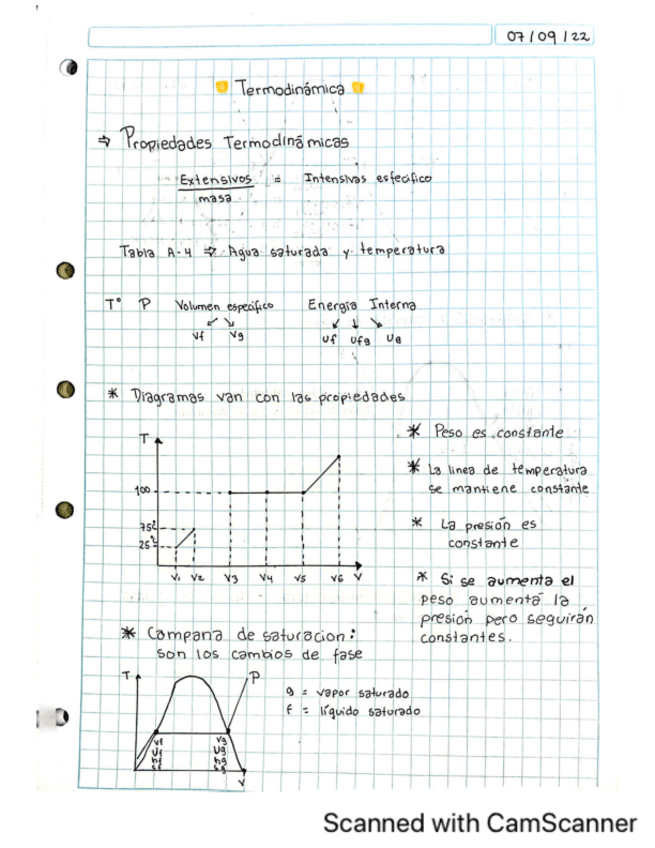 07/09/22
Termodinámica
⇒ Propiedades Termodinámicas
Extensivos = Intensivas esfecifico
masa
Tabla A-4 ⇒ Agua saturada y temperatura
T° P Volumen especifico Energía Interna
Vf Vg Uf Ufg Ug
* Diagramas van con las propiedades
* Peso es constante
* La linea de temperatura
se mantiene constante
* La presión es
constante
* Si se aumenta el
peso aumenta la
presión pero seguirán
constantes.
T
100
75°
25°
V1 V2 V3 V4 V5 V6 V
* Campana de saturacion:
son los cambios de fase
T P
g = vapor saturado
f = líquido saturado
Vf Vg
Uf Ug
hf hg
sf sg
V
Scanned with CamScanner